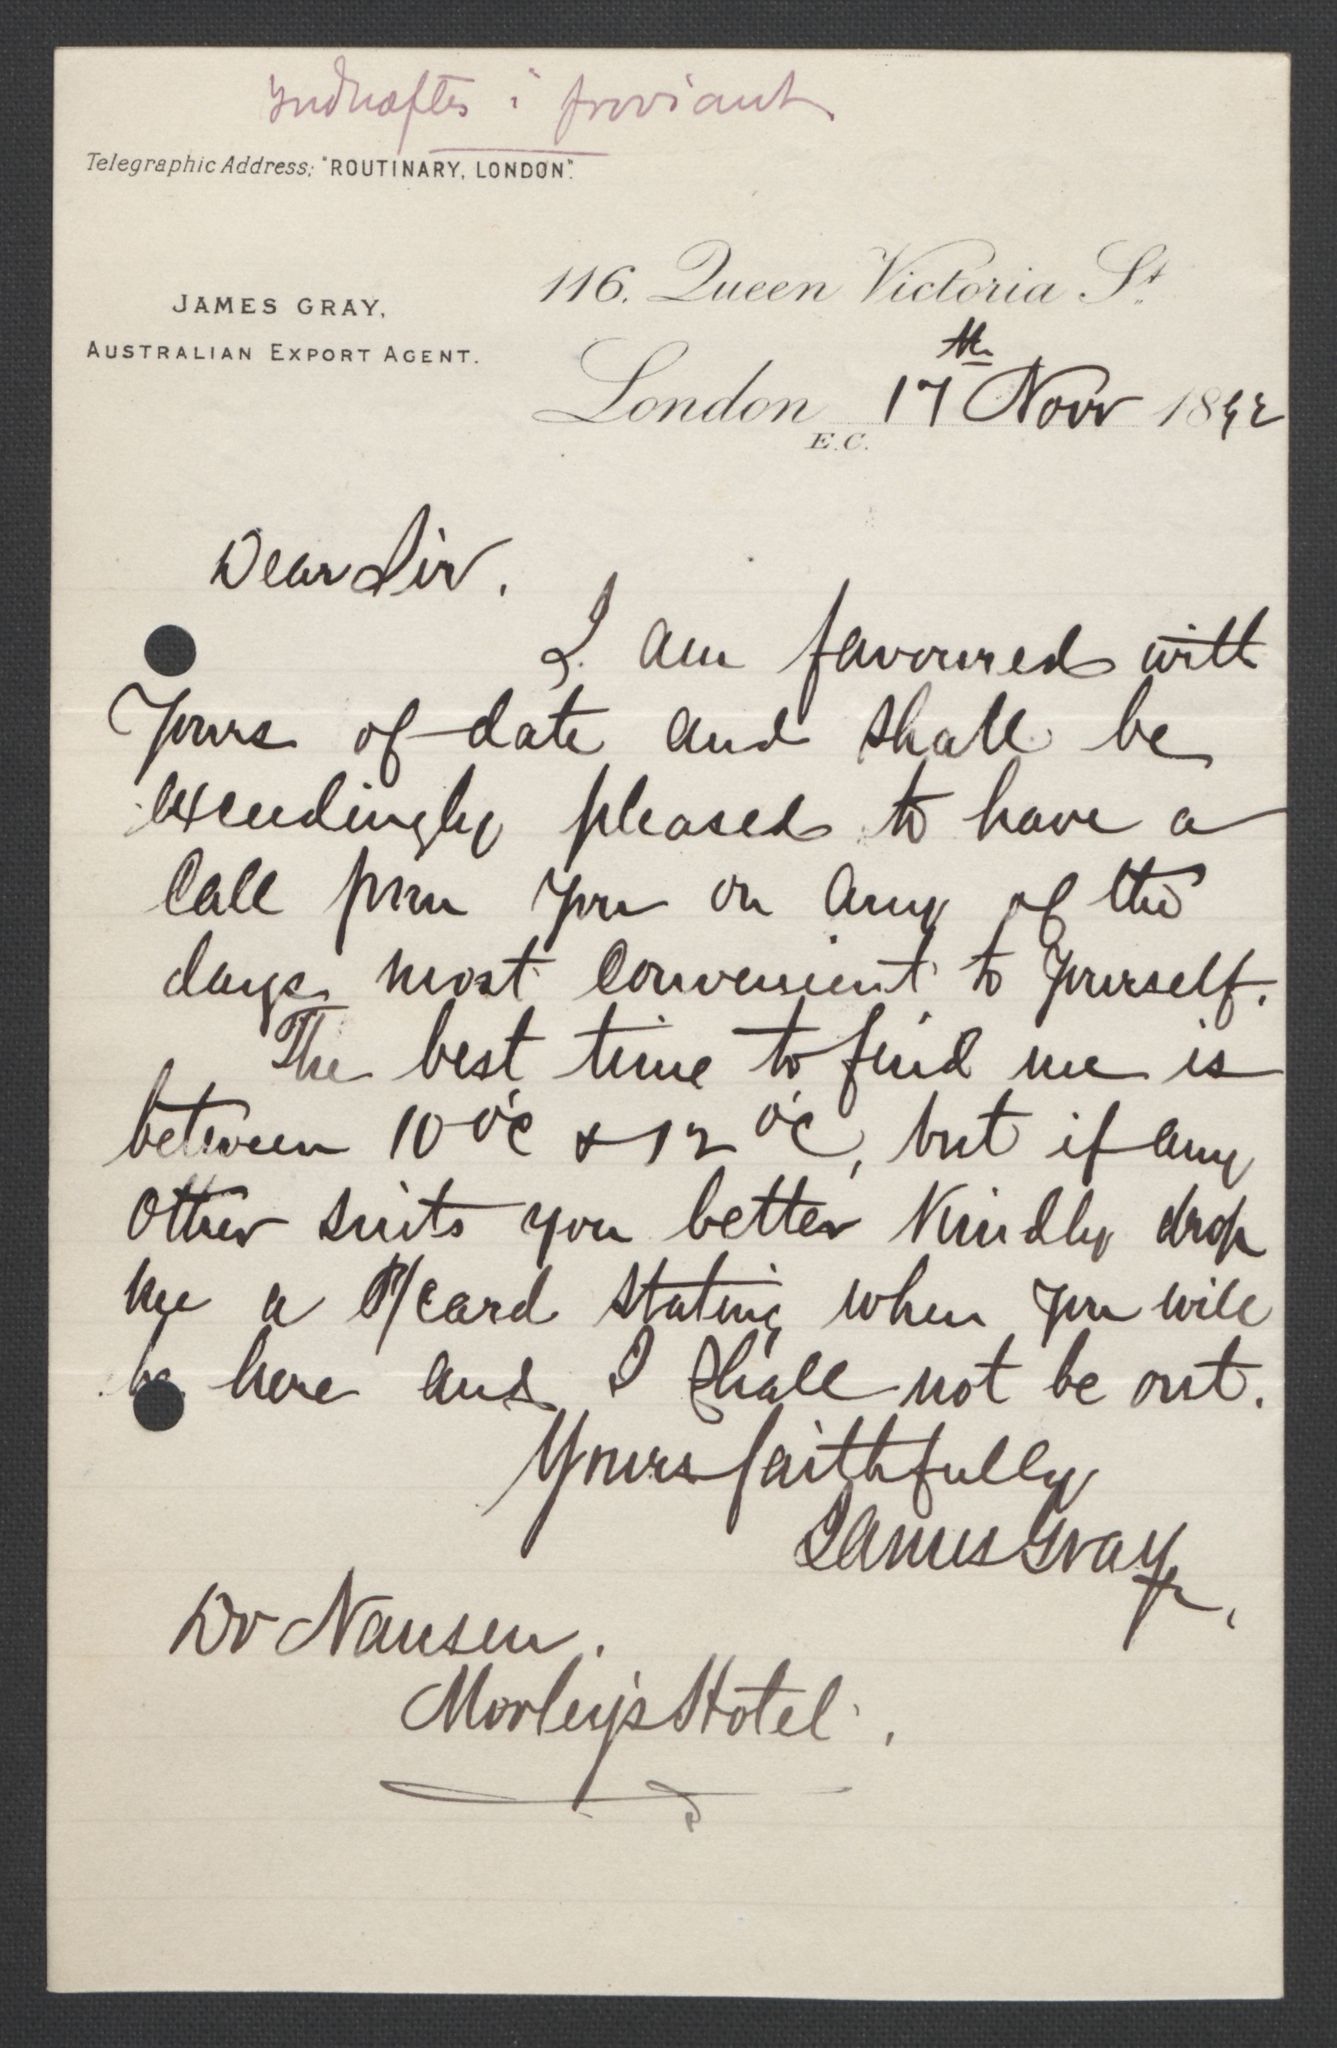 Indhæftes i proviant
Telegraphic Address: "ROUTINARY, LONDON".
116. Queen Victoria St.
JAMES GRAY,
AUSTRALIAN EXPORT AGENT.
London 17th Novr 1892
E.C.
Dear Sir.
I am favoured with
Yours of date and shall be
exceedingly pleased to have a
Call from You on any of the
days most Convenient to Yourself.
The best time to find me is
between 10 o'c & 12 o'c, but if any
Other suits you better Kindly drop
me a P/Card stating when You will
be here and I shall not be out.
Yours faithfully
James Gray
Dr Nansen.
Morley's Hotel.